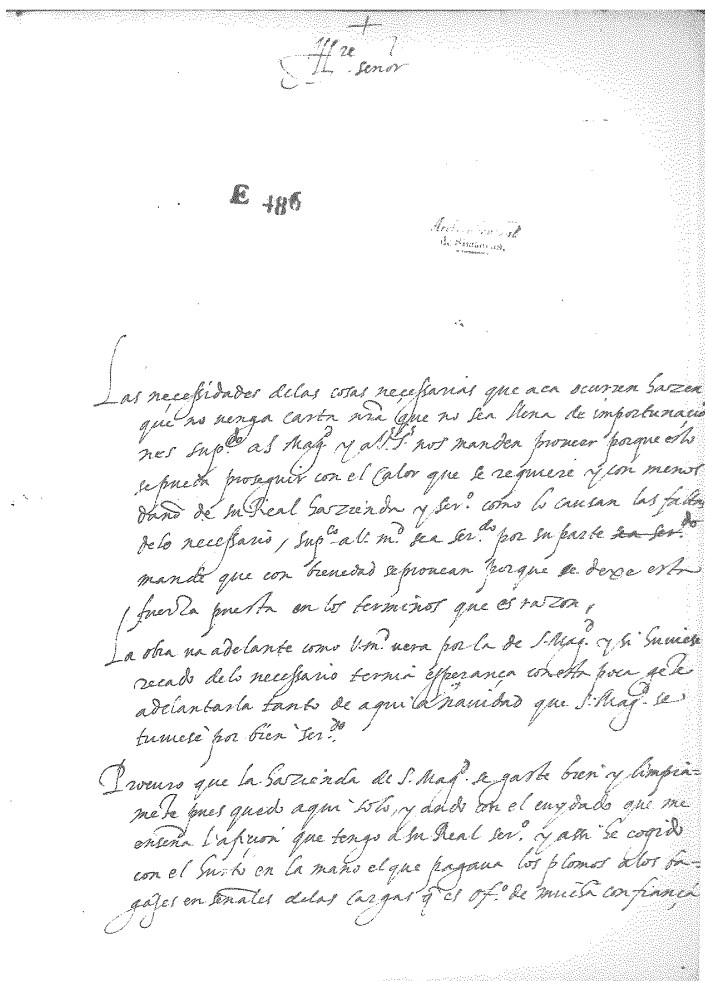 +
Ill.re
señor
E 486
Archivo General
de Simancas.
Las necessidades delas cosas necessarias que aca ocurren hazen
que no venga carta nr̃a que no sea llena de importunacio
nes sup.co a S. Mag.d y a V.S.S. nos manden proueer porque esto
se pueda proseguir con el calor que se requiere y con menos
daño de su Real hazienda y ser.o como lo causan las faltas
delo necessario, sup.co a V. m.d sea ser.do por su parte sea ser.do
mande que con breuedad se prouean porque se dexe esta
fuerza puesta en los terminos que es razon,
La obra va adelante como V. m.d vera por la de S. Mag.d y si huuiese
recado delo necessario ternia esperança con esta poca gẽte
adelantarla tanto de aqui la nauidad que S. Mag.d se
tuuiese por bien ser.do
Procuro que la hazienda de S. Mag.d se gaste bien y limpia-
mẽte pues quedo aqui solo, y ando con el cuydado que me
enseña l'aficion que tengo a su Real ser.o y assi he cogido
con el hurto en la mano el que pagaua los plomos a los ba-
gajes en señales delas cargas q̃ es of.o de mucha confiança